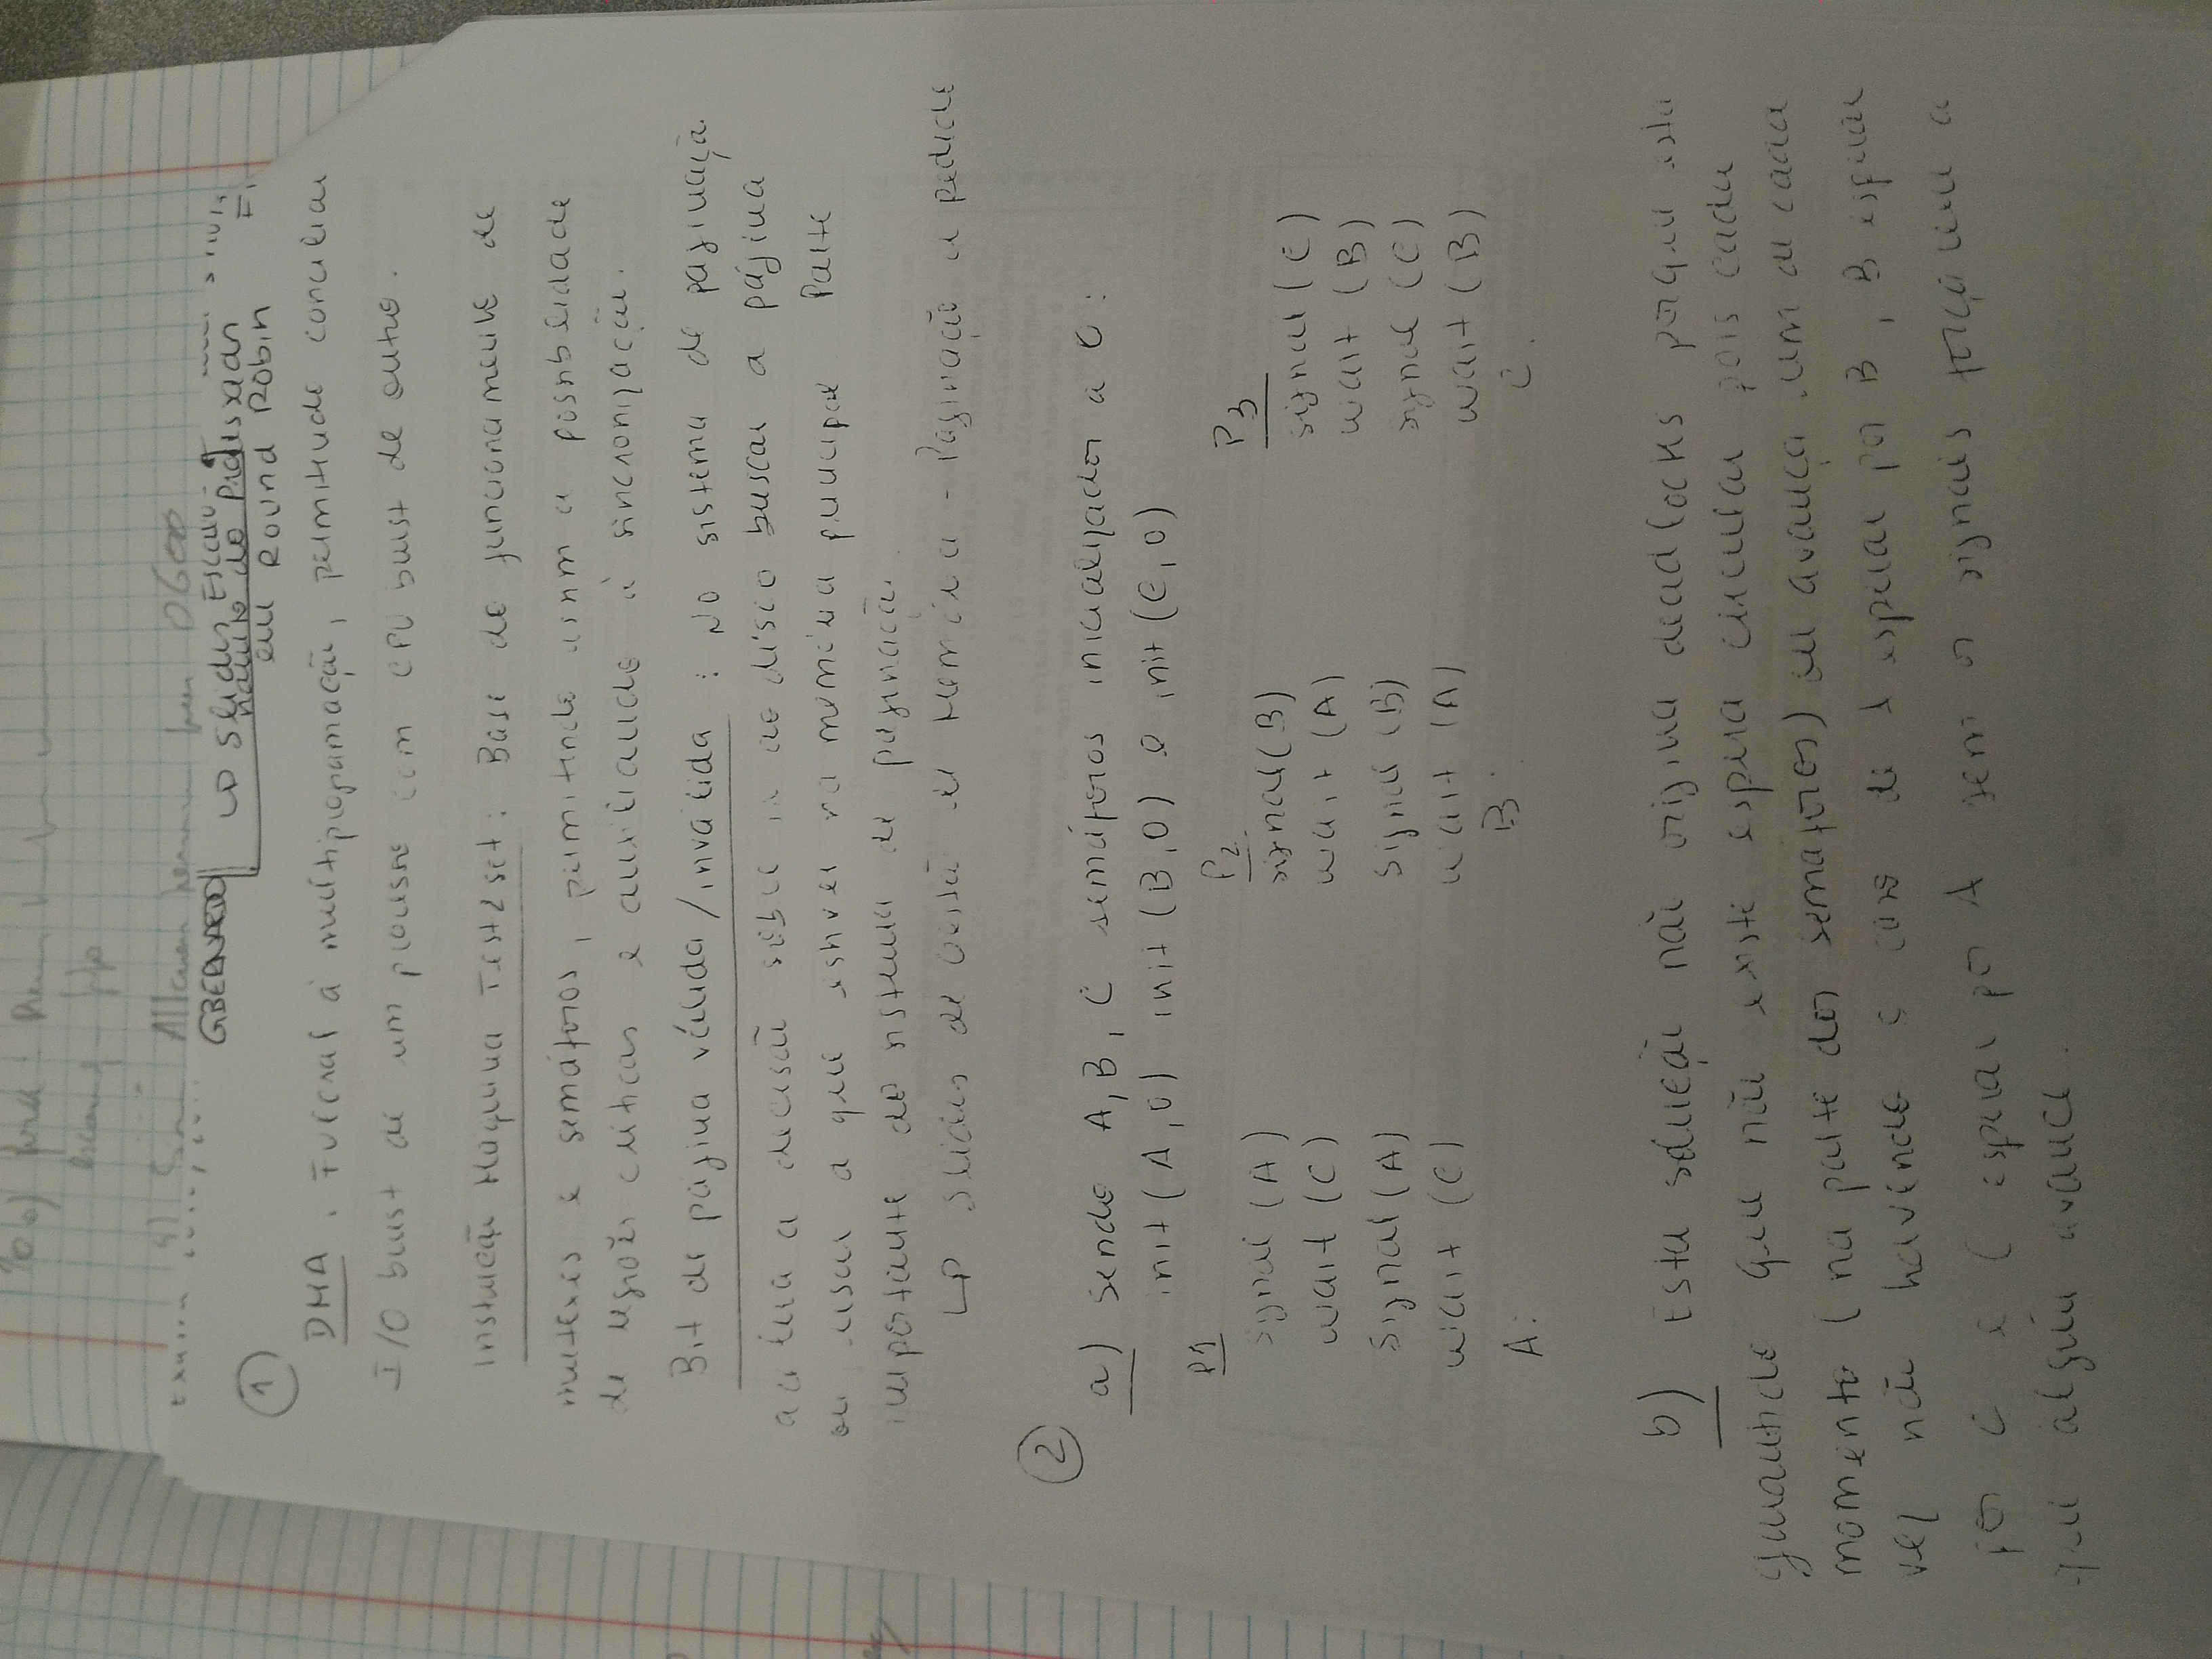 10 b)
GBERNARDO
LD Slides Escalo-
namento do Processador
em Round Robin
1
DMA. Fulcral à multiprogramação, permitindo conciliar
I/O burst de um processo com CPU burst de outro.
Instrução Máquina Test&set: Base do funcionamento de
mutexes e semáforos, permitindo assim a possibilidade
de regiões críticas e auxiliando à sincronização.
Bit de página válida/inválida: No sistema de paginação
acelera a decisão sobre ir ao disco buscar a página
ou usar a que estiver na memória principal. Parte
importante do sistema de paginação.
LD Slides de Gestão de Memória - Paginação a pedido
2
a) Sendo A, B, C semáforos inicializados a 0:
init(A,0) init(B,0) e init(C,0)
P1 P2 P3
signal(A) signal(B) signal(C)
wait(C) wait(A) wait(B)
signal(A) signal(B) signal(C)
wait(C) wait(A) wait(B)
A: B: C:
b) Esta solução não origina deadlocks porque está
garantido que não existe espera circular pois cada
momento (na parte dos semáforos) ou avança um de cada
vez não havendo o caso de A esperar por B, B esperar
por C e C esperar por A sem os signals forçarem a
que algum avance.